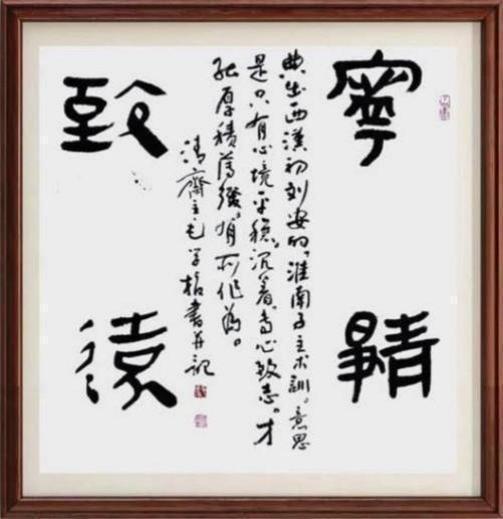 寧靜
典出西漢初刘安的“淮南子主术訓”。意思
是只有心境平穏、沉着、专心致志。才
能厚積薄發，有所作為。
清齋主 書并記
致遠